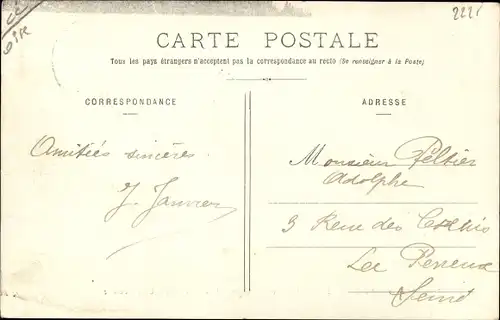 2221
CARTE POSTALE
Tous les pays étrangers n'acceptent pas la correspondance au recto (Se renseigner à la Poste)
CORRESPONDANCE
ADRESSE
Amitiés sincères.
J. Janvier
Monsieur Peltier
Adolphe
3 Rue des
Le Perreux
Seine